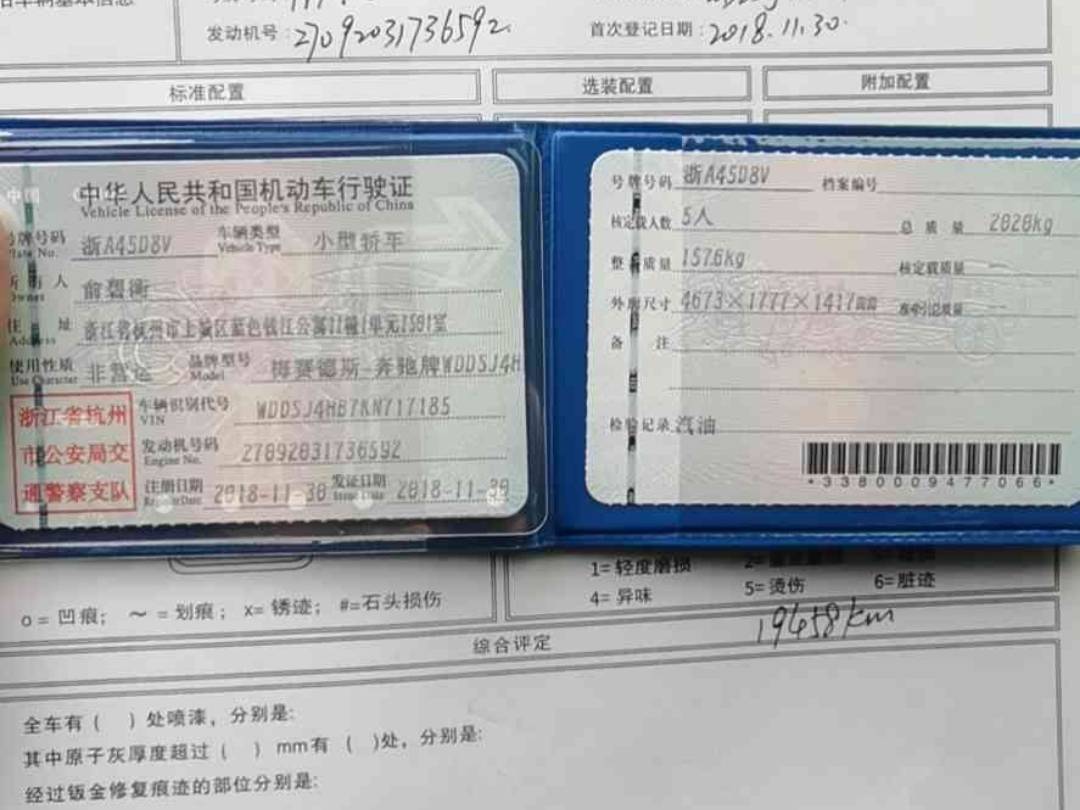 发动机号:27092031736592.
首次登记日期:2018.11.30.
标准配置
选装配置
附加配置
中华人民共和国机动车行驶证
Vehicle License of the People's Republic of China
号牌号码 浙A45D8V 车辆类型 小型轿车
Plate No. Vehicle Type
所有人
Owner
住址 浙江省杭州市上城区蓝色钱江公寓11幢1单元1501室
Address
使用性质 非营运 品牌型号 梅赛德斯-奔驰牌WDDSJ4H
Use Character Model
浙江省杭州
市公安局交
通警察支队
车辆识别代号 WDDSJ4HB7KN717185
VIN
发动机号码 27092031736592
Engine No.
注册日期 2018-11-30 发证日期 2018-11-30
Register Date Issue Date
号牌号码 浙A45D8V 档案编号
核定载人数 5人 总质量 2020kg
整备质量 1576kg 核定载质量 --
外廓尺寸 4673×1777×1417mm 准牵引总质量 --
备注
检验记录 汽油
*3380009477066*
1=轻度磨损
4=异味 5=烫伤 6=脏迹
o=凹痕; ～=划痕; x=锈迹; #=石头损伤
19458km
综合评定
全车有( )处喷漆，分别是:
其中原子灰厚度超过( )mm有( )处，分别是:
经过钣金修复痕迹的部位分别是: